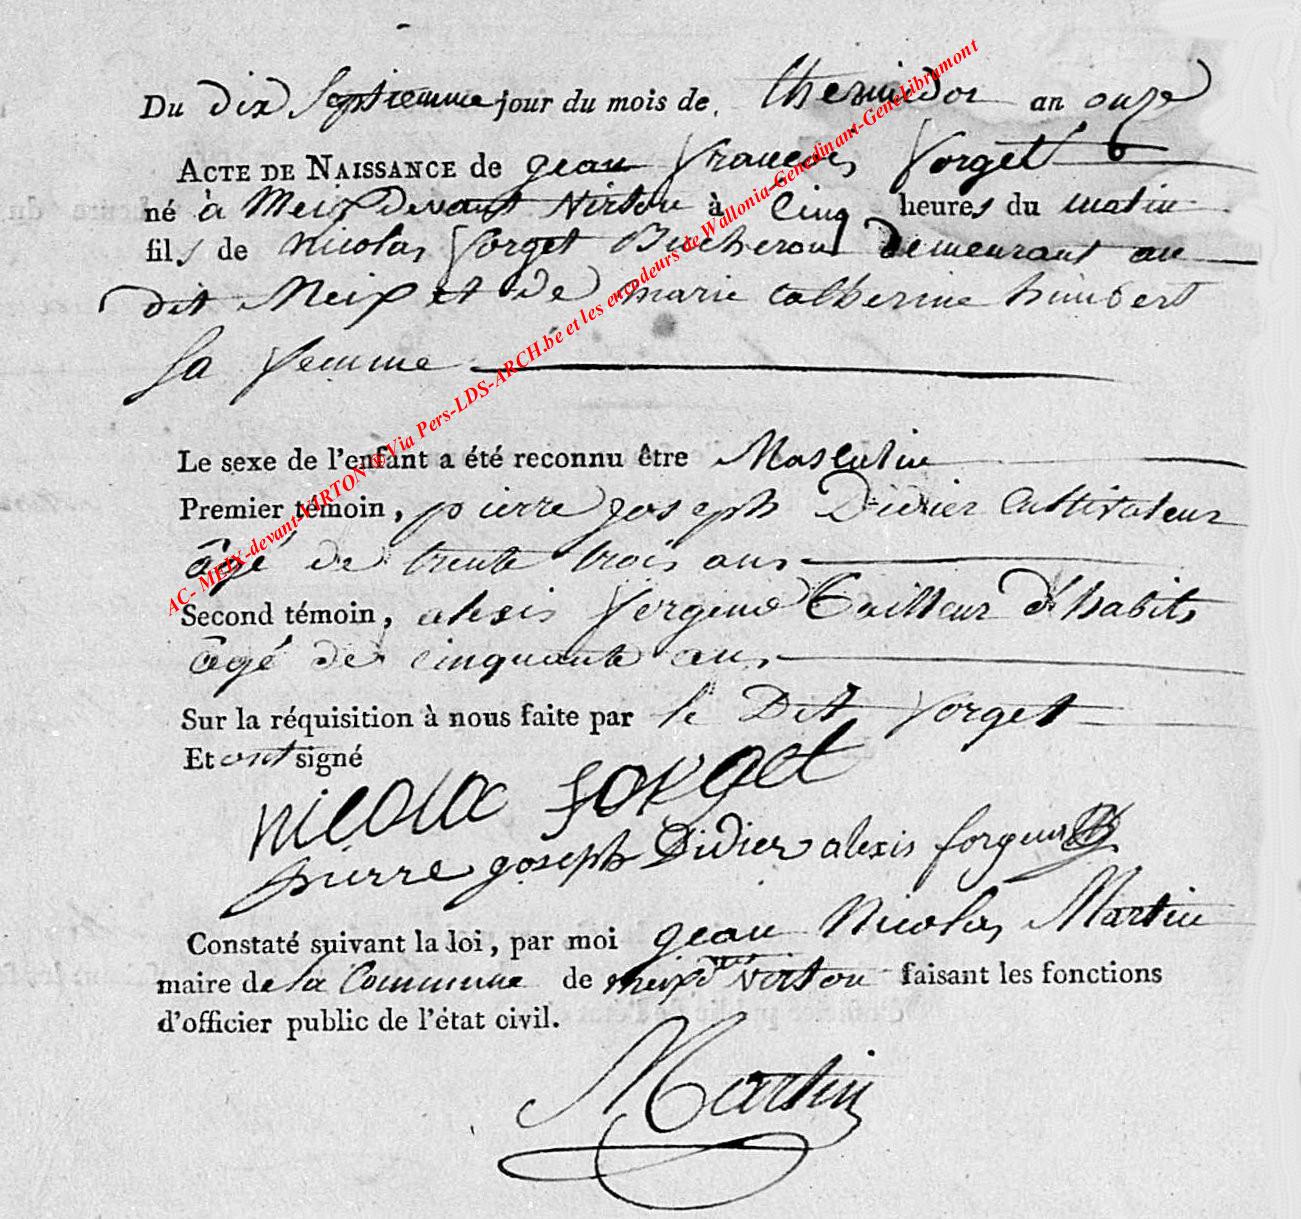 Du dix Septiemme jour du mois de thermidor an onze
ACTE DE NAISSANCE de jean françois forget
né à Meix devant Virton à Cinq heures du matin
fils de Nicolas forget Bucheron Demeurant au
dit Meix et de marie catherine humbert
Sa femme
Le sexe de l'enfant a été reconnu être Masculin
Premier témoin, pierre joseph Didier Cultivateur
âgé de trente trois ans
Second témoin, alexis forgeur Tailleur d'habits
âgé de cinquante ans
Sur la réquisition à nous faite par le Dit forget
Et ont signé
nicola forget
pierre joseph Didier alexis forgeur
Constaté suivant la loi, par moi jean Nicolas Martin
maire de la Commune de meix dvt virton faisant les fonctions
d'officier public de l'état civil.
Martin
AC- MEIX-devant-VIRTON Via Pers-LDS-ARCH.be et les encodeurs de Wallonia-Genedinant-GeneLibramont